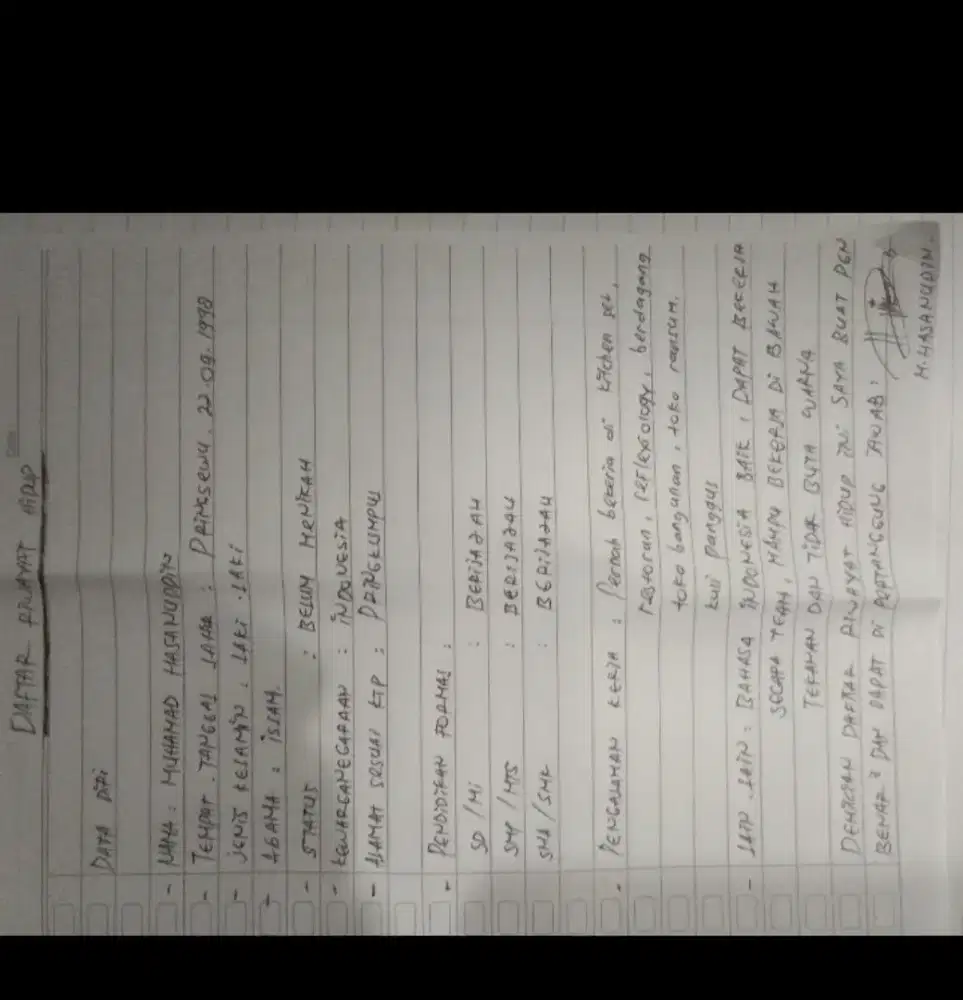 DAFTAR RIWAYAT HIDUP
DATA DIRI
- NAMA : MUHAMAD HASANUDDIN
- TEMPAT . TANGGAL LAHIR : PRINGSEWU . 22 . 09 . 1998
- JENIS KELAMIN : LAKI . LAKI
- AGAMA : ISLAM.
- STATUS : BELUM MENIKAH
- KEWARGANEGARAAN : INDONESIA
- ALAMAT SESUAI KTP : PRINGKUMPUL
- PENDIDIKAN FORMAL :
SD / MI : BERIJAZAH
SMP / MTS : BERIJAZAH
SMA / SMK : BERIJAZAH
- PENGALAMAN KERJA : Pernah bekerja di kitchen set,
restoran, reflexiology, berdagang
toko bangunan, toko ransum.
kuli panggul
- LAIN . LAIN : BAHASA INDONESIA BAIK, DAPAT BEKERJA
SECARA TEAM, MAMPU BEKERJA DI BAWAH
TEKANAN DAN TIDAK BUTA WARNA
DEMIKIAN DAFTAR RIWAYAT HIDUP INI SAYA BUAT DGN
BENAR² DAN DAPAT DI PERTANGGUNG JAWAB :
M. HASANUDIN.